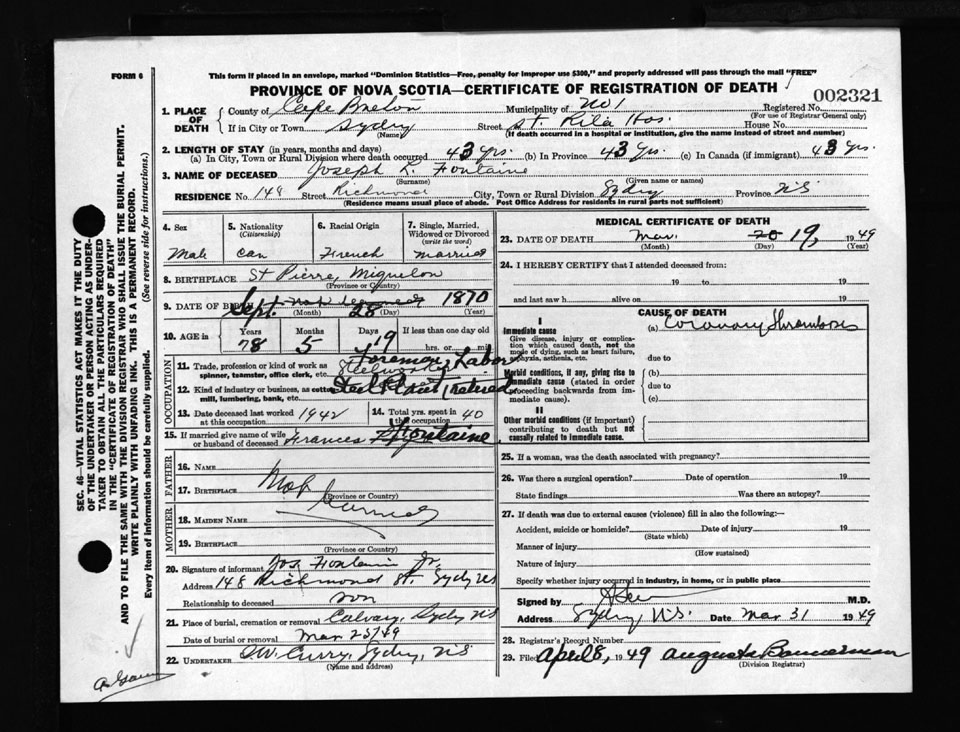 FORM 6
This form if placed in an envelope, marked "Dominion Statistics—Free, penalty for improper use $300," and properly addressed will pass through the mail "FREE"
PROVINCE OF NOVA SCOTIA—CERTIFICATE OF REGISTRATION OF DEATH
002321
1. PLACE OF DEATH
County of Cape Breton Municipality of No 1 Registered No.
(For use of Registrar General only)
If in City or Town Sydney Street St. Rita Hos. House No.
(Name) (If death occurred in a hospital or institution, give the name instead of street and number)
2. LENGTH OF STAY (in years, months and days)
(a) In City, Town or Rural Division where death occurred 43 yrs. (b) In Province 43 yrs. (c) In Canada (if immigrant) 43 yrs.
3. NAME OF DECEASED Joseph L. Fontaine
(Surname) (Given name or names)
RESIDENCE No. 148 Street Richmond City, Town or Rural Division Sydney Province NS
(Residence means usual place of abode. Post Office Address for residents in rural parts not sufficient)
4. Sex Male
5. Nationality (Citizenship) Can
6. Racial Origin French
7. Single, Married, Widowed or Divorced (write the word) Married
8. BIRTHPLACE St Pierre, Miquelon
(Province or Country)
9. DATE OF BIRTH Sept. 28 1870
(Month) (Day) (Year)
10. AGE in Years Months Days If less than one day old
78 5 19 hrs. or min.
OCCUPATION
11. Trade, profession or kind of work as spinner, teamster, office clerk, etc. Foreman Labor
Steelworker
12. Kind of industry or business, as cotton mill, lumbering, bank, etc. Steel Plant (retired)
13. Date deceased last worked at this occupation 1942
14. Total yrs. spent in this occupation 40
15. If married give name of wife or husband of deceased Frances Fontaine
FATHER
16. NAME
17. BIRTHPLACE
(Province or Country)
Not
MOTHER
18. MAIDEN NAME
19. BIRTHPLACE
(Province or Country)
20. Signature of informant Jos Fontaine Jr.
Address 148 Richmond St. Sydney NS
Relationship to deceased son
21. Place of burial, cremation or removal Calvary, Sydney NS
Date of burial or removal Mar 23/49
22. UNDERTAKER Curry, Sydney, NS
(Name and address)
MEDICAL CERTIFICATE OF DEATH
23. DATE OF DEATH Mar. 20 19, 1949
(Month) (Day) (Year)
24. I HEREBY CERTIFY that I attended deceased from:
19 to 19
and last saw h alive on 19
CAUSE OF DEATH
I
Immediate cause
Give disease, injury or complication which caused death, not the mode of dying, such as heart failure, asphyxia, asthenia, etc.
(a) Coronary Thrombosis
due to
Morbid conditions, if any, giving rise to immediate cause (stated in order proceeding backwards from immediate cause).
(b)
due to
(c)
II
Other morbid conditions (if important) contributing to death but not causally related to immediate cause.
25. If a woman, was the death associated with pregnancy?
26. Was there a surgical operation? Date of operation 19
State findings Was there an autopsy?
27. If death was due to external causes (violence) fill in also the following:—
Accident, suicide or homicide? Date of injury 19
(State which)
Manner of injury
(How sustained)
Nature of injury
Specify whether injury occurred in industry, in home, or in public place
Signed by M.D.
Address Sydney, N.S. Date Mar 31 1949
28. Registrar's Record Number
29. Filed April 8, 1949 Augusta Bannerman
(Division Registrar)
SEC. 46—VITAL STATISTICS ACT MAKES IT THE DUTY
OF THE UNDERTAKER OR PERSON ACTING AS UNDER-
TAKER TO OBTAIN ALL THE PARTICULARS REQUIRED
IN THE "CERTIFICATE OF REGISTRATION OF DEATH"
AND TO FILE THE SAME WITH THE DIVISION REGISTRAR WHO SHALL ISSUE THE BURIAL PERMIT.
WRITE PLAINLY WITH UNFADING INK. THIS IS A PERMANENT RECORD.
Every item of information should be carefully supplied. (See reverse side for instructions.)